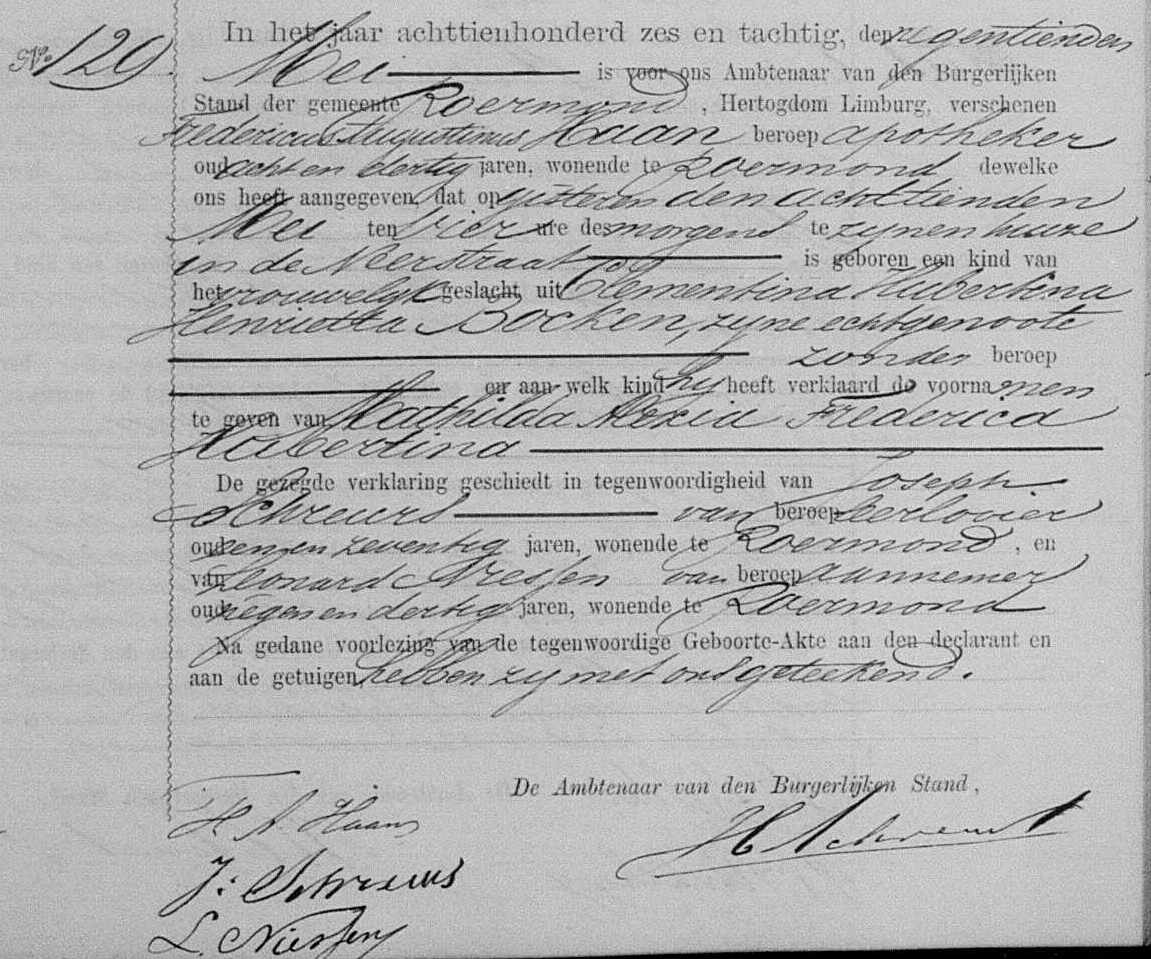 No. 129.
In het jaar achttienhonderd zes en tachtig, den negentienden
Mei is voor ons Ambtenaar van den Burgerlijken
Stand der gemeente Roermond, Hertogdom Limburg, verschenen
Fredericus Augustinus Haan beroep apotheker
oud acht en dertig jaren, wonende te Roermond dewelke
ons heeft aangegeven, dat op gisteren den achttienden
Mei ten vier ure des morgens te zijnen huize
in de Neerstraat is geboren een kind van
het vrouwelijk geslacht, uit Clementina Hubertina
Henrietta Bocken, zijne echtgenoote
zonder beroep
en aan welk kind hij heeft verklaard de voornamen
te geven van Mathilda Maria Frederica
Hubertina
De gezegde verklaring geschiedt in tegenwoordigheid van Joseph
Schreurs van beroep
oud een en zeventig jaren, wonende te Roermond, en
van Leonard Niessen van beroep aannemer
oud negen en dertig jaren, wonende te Roermond
Na gedane voorlezing van de tegenwoordige Geboorte-Akte aan den declarant en
aan de getuigen, hebben zij met ons geteekend.
De Ambtenaar van den Burgerlijken Stand,
F A Haan
H Schreurs
J: Schreurs
L. Niessen